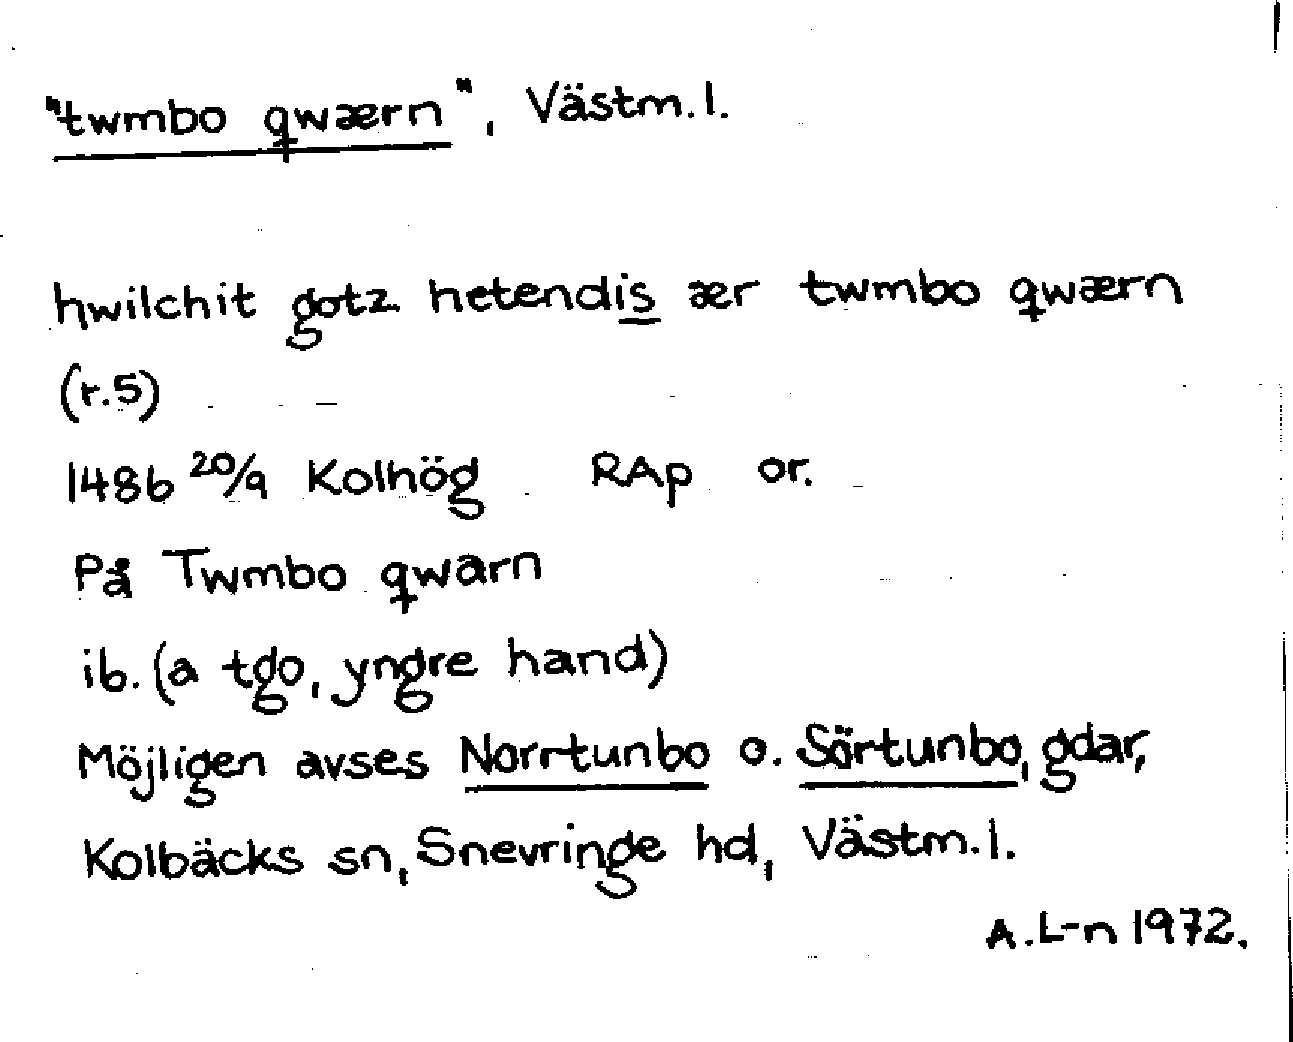 "twmbo qwærn", Västm.l.
hwilchit gotz hetendis ær twmbo qwærn
(r.5)
1486 20/9 Kolhög RAp or.
På Twmbo qwarn
ib. (a tgo, yngre hand)
Möjligen avses Norrtunbo o. Sörtunbo, gdar,
Kolbäcks sn, Snevringe hd, Västm.l.
A.L-n 1972.